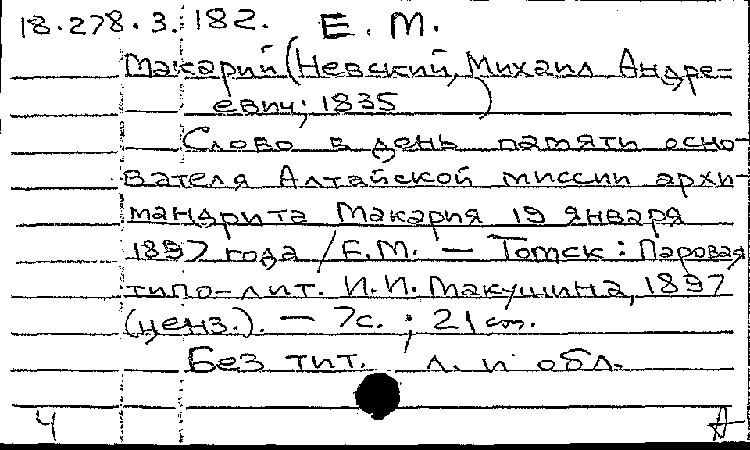 18.278.3.182. Е. М.
Макарий (Невский, Михаил Андре-
евич; 1835 )
Слово в день памяти осно-
вателя Алтайской миссии архи-
мандрита Макария 19 января
1897 года / Е.М. — Томск: Паровая
типо-лит. И.И. Макушина, 1897
(ценз.). — 7с.; 21 cm.
Без тит. л. и обл.
Ч А